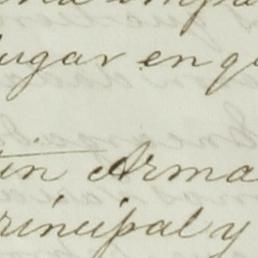 lugar en q
tin Arma
rincipal y